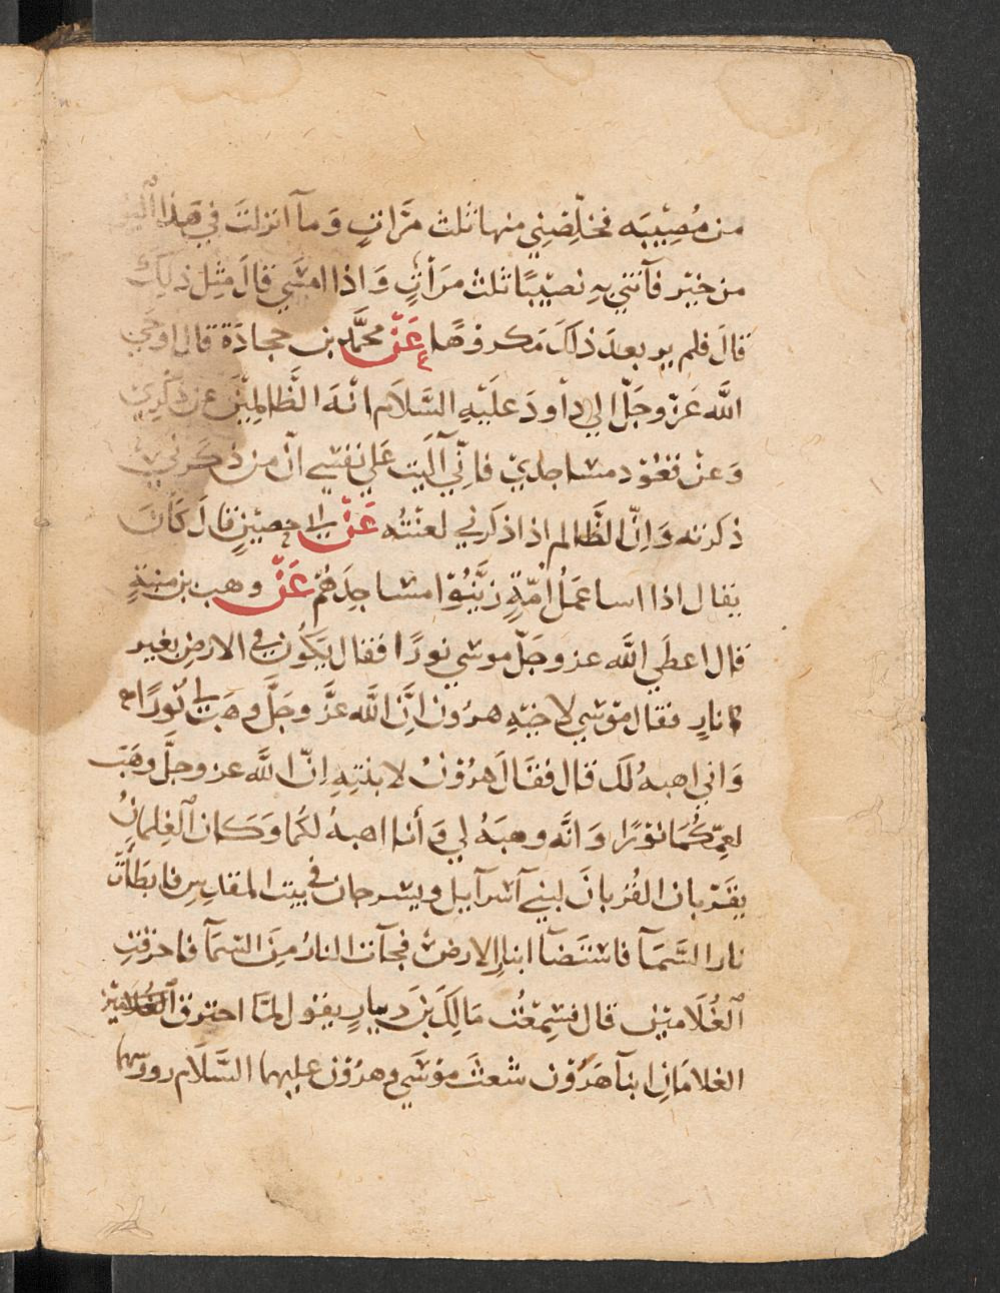 من مُصِيْبَه فخلّصْنِي منها ثلث مرّاتٍ وَمآ انزلتَ في هَذا
من خيْر فآتنى بهِ نصيْبًا ثلث مرَاتٍ وَاذا امسَى قالَ مثل ذلك
قالَ فلم ير بعدَ ذلكَ مَكروهًا عَنْ محمَّد بن حجادَة قال اوحى
الله عَزّ وجَلّ الى داودَ علَيْهِ السَّلام انْهَ الظَّالِمِيْنَ عن ذكْرِي
وَعنْ قعُوْد مساجدي فانّى آلَيت علي نفسى انّ من ذكرني
ذكرته وَانّ الظّالم اذا ذكرنى لعنْتُه عَنْ ابى حصيْنٍ قالَ كَانَ
يقال اذا اسا عمَلُ اُمّةٍ زيَّنُوْا مساجِدَهُمْ عَنْ وهب بن منبةٍ
قال اعطَى الله عز وجَلّ موسى نورًا فقال يَكُون فى الارض بغير
نارٍ فقال مُوْسى لاخيْهِ هرُون انَّ الله عزَّ وجَلَّ وهَبَ لى نُورًا
وَانى اهبهُ لَك قال فقَالَ هرُوْنُ لابنَيْهِ انّ الله عز وجلَّ وهَبَ
لعمّكُمَا نوْرًا وَانَّه وهبَهُ لي وَأنا اهبهُ لكُمَا وَكان الغِلمانُ
يقَرّبان القُرْبانَ لبنى آسْرآيل ويسْرجان فى بيت المقدِس فابطَاتْ
نار السَّمآ فاسْتَضآ ابنارِ الارض فجآت النارُ مِنَ السّمآ فاحرقتِ
الغُلَاميْن قال فسَمِعْتُ مَالِكَ بْنَ ديْنارٍ يقول لمّا احترق
الغلامَانِ ابنآ هَرُوْن شعثَ مُوْسَى وهرُوْن عليهما السَّلَام رووسهما